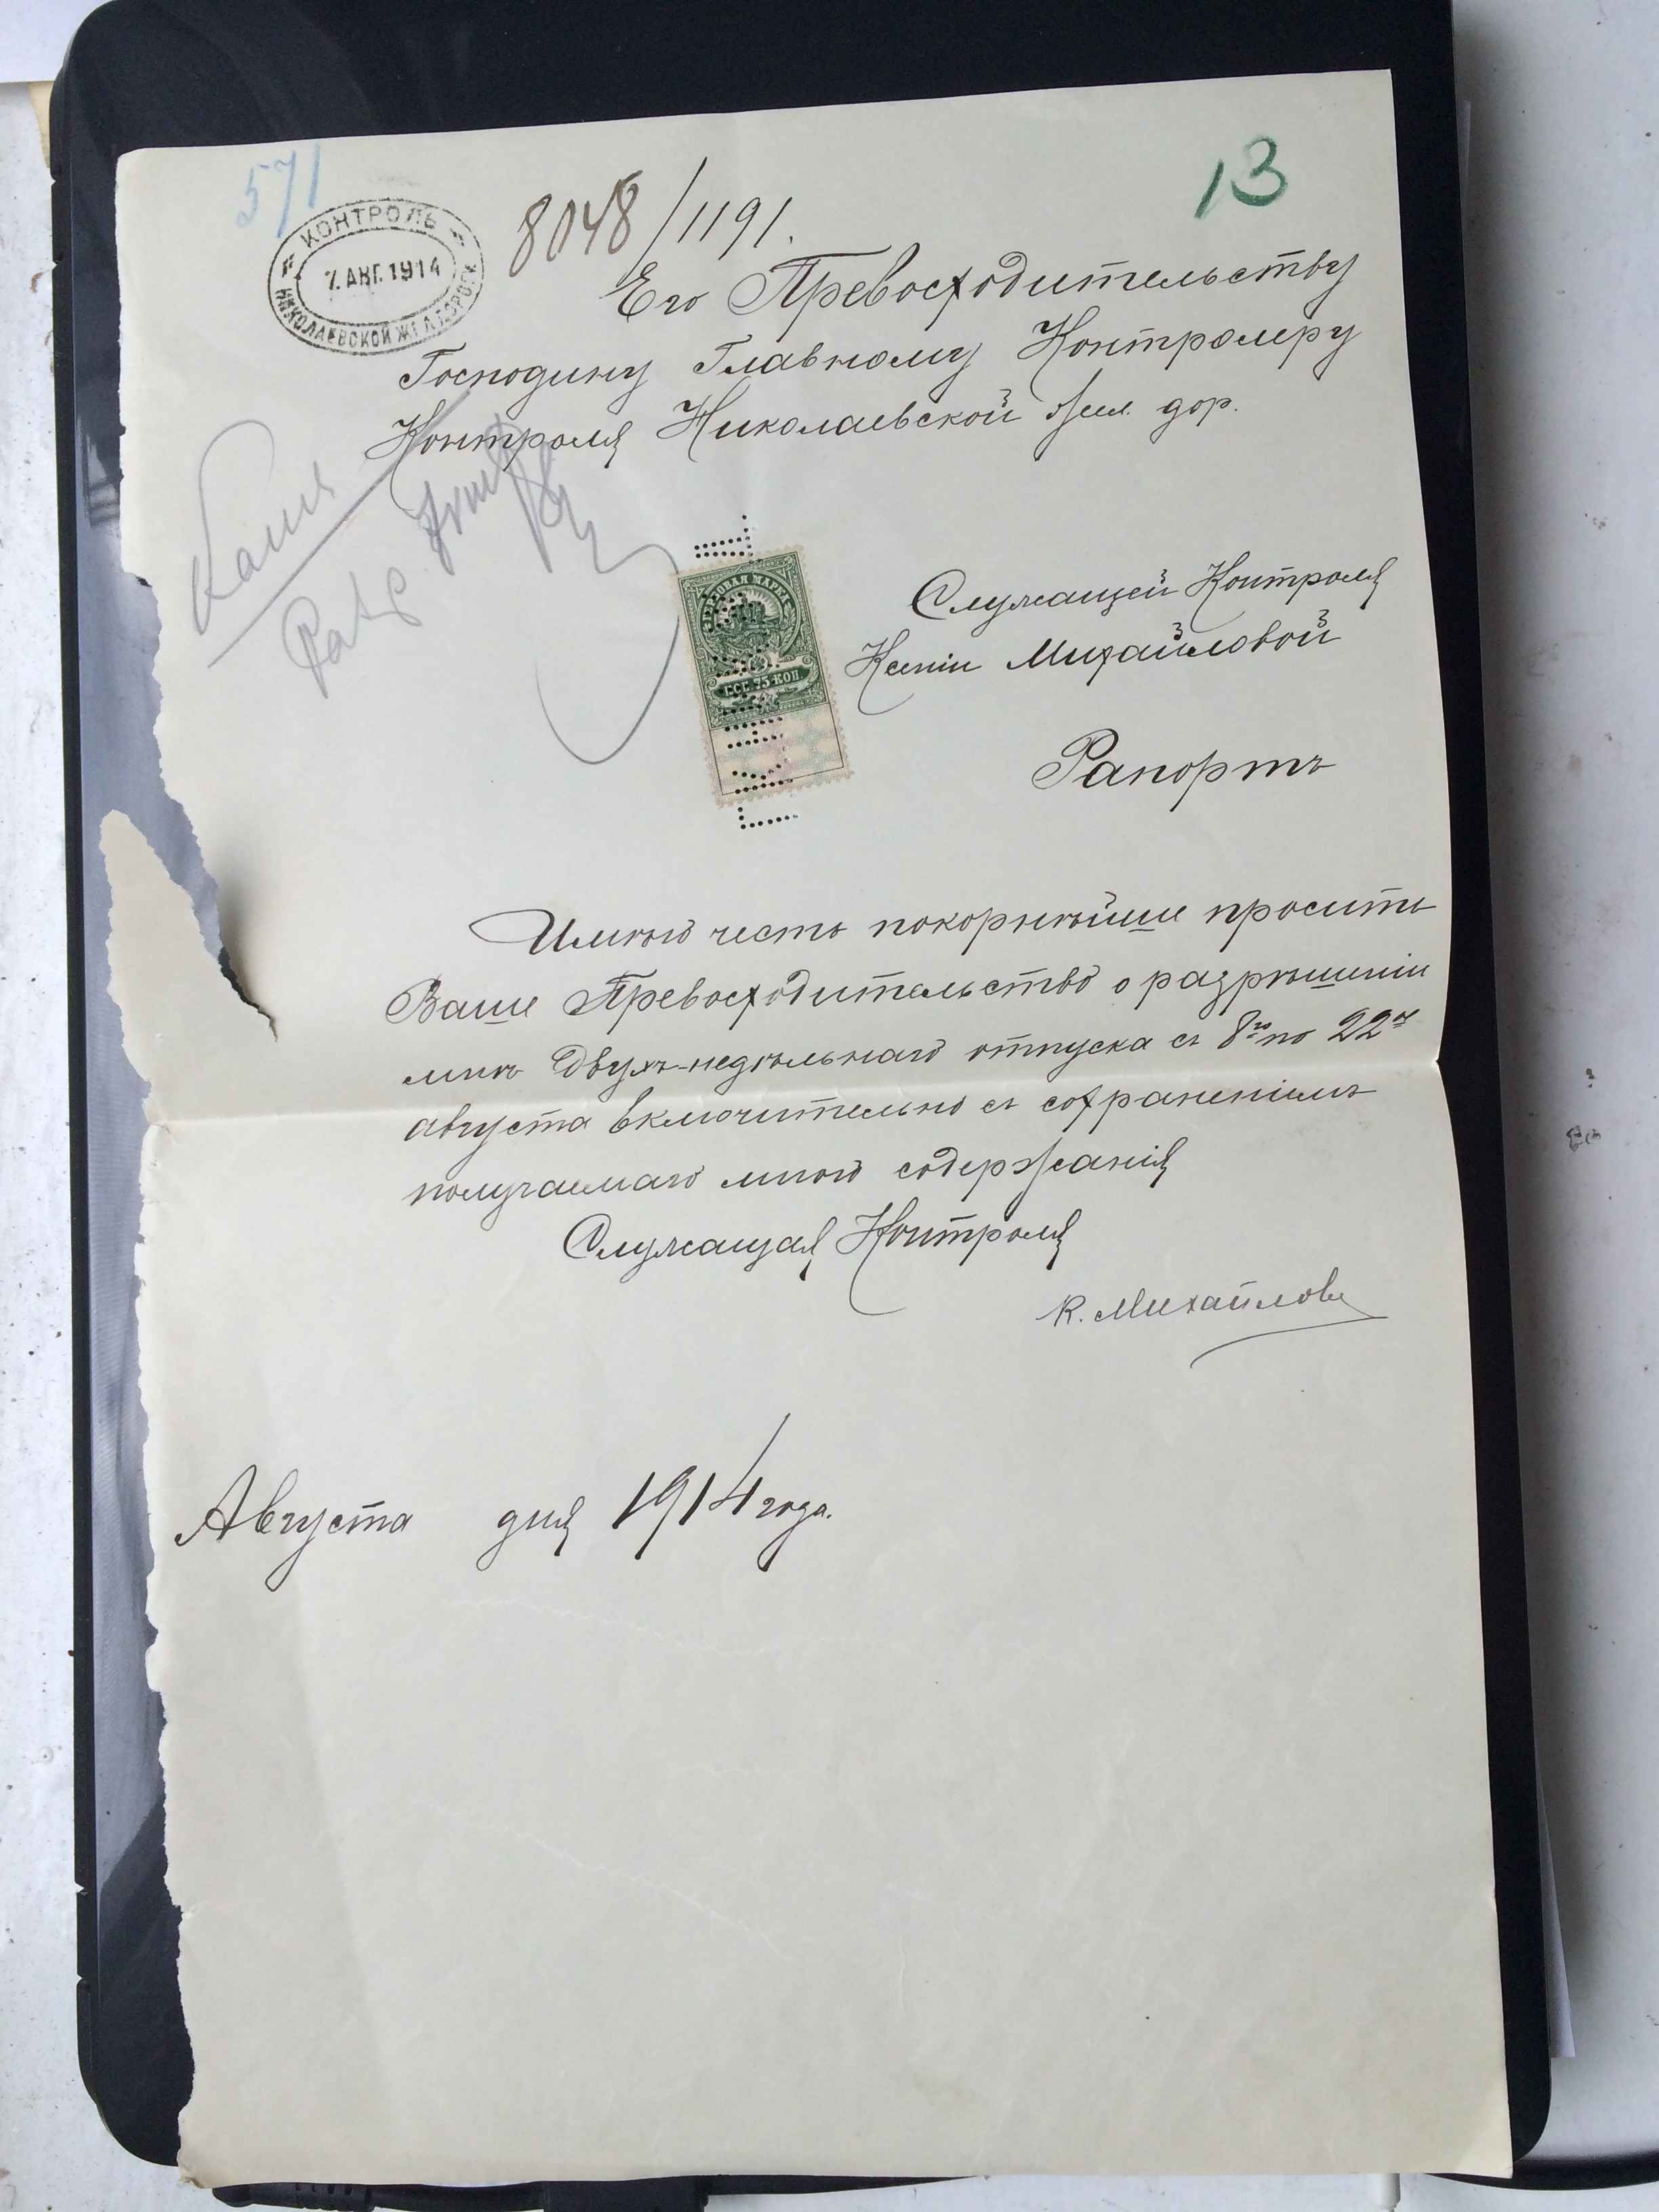 571
13
КОНТРОЛЬ
7. АВГ. 1914
НИКОЛАЕВСКОЙ ЖЕЛ. ДОРОГИ
8048/1191.
Его Превосходительству
Господину Главному Контролеру
Контроля Николаевской жел. дор.
ГЕРБОВАЯ МАРКА
75 КОП
Служащей Контроля
Ксеніи Михайловой
Рапортъ
Имѣю честь покорнѣйше просить
Ваше Превосходительство о разрѣшеніи
мнѣ двухъ-недѣльнаго отпуска съ 8го по 22е
августа включительно съ сохраненіемъ
получаемаго мною содержанія
Служащая Контроля
К. Михайлова
Августа дня 1914 года.